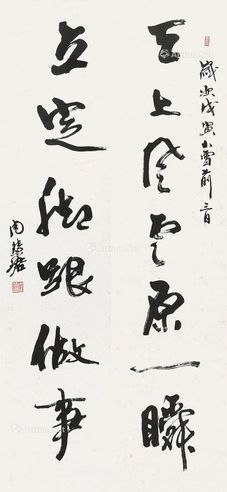 歲次戊寅小雪前三日
天上風雲原一瞬
立定腳跟做事
周慧珺